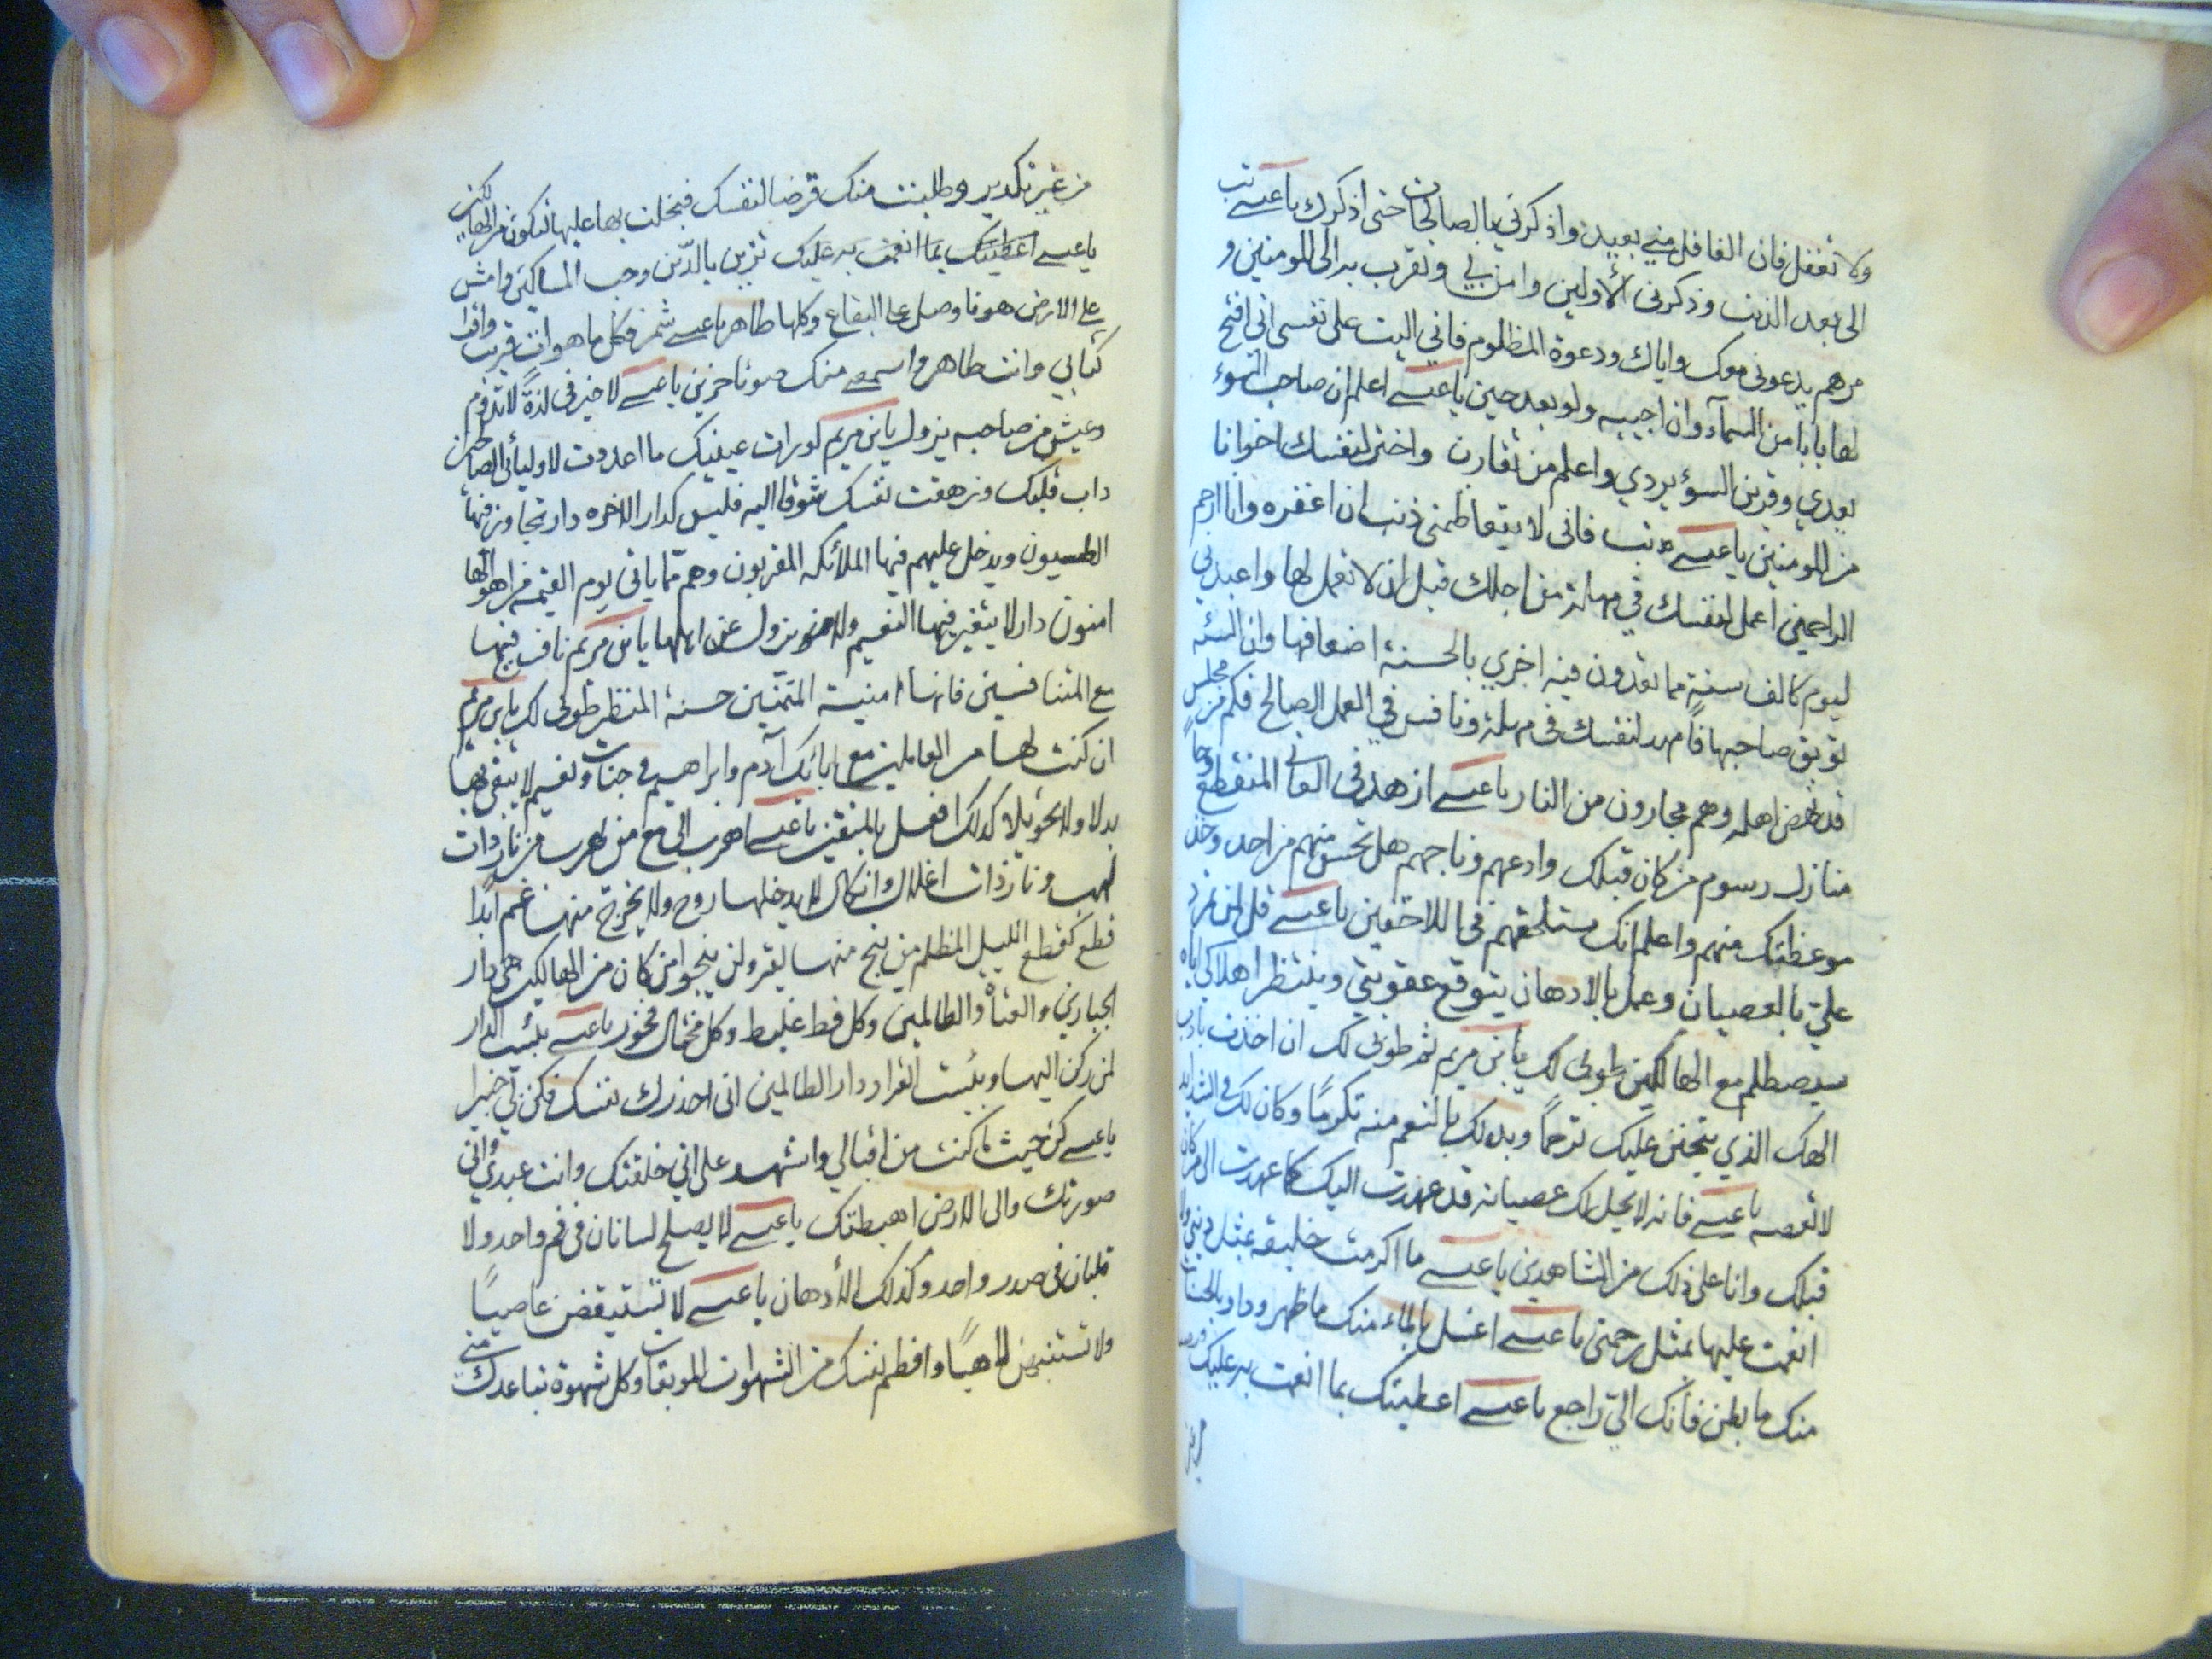 ولا تغفل فان الغافل مني بعيد واذكرني بالصالحات حتى اذكرك يا عيسى تب
الى بعد الذنب وذكرنى الأولين وامن بي وتقرب بي الى المومنين و
مرهم يدعونى معك واياك ودعوة المظلوم فاني اليت على نفسى انى افتح
لها بابا من السمآء وان اجيبه ولو بعد حين يا عيسى اعلم ان صاحب السوء
يعدي وقرين السوء يردي واعلم من تقارن واختر لنفسك اخوانا
من المومنين يا عيسى تب فانى لا يتعاظمنى ذنب ان اغفره وانا ارحم
الراحمين اعمل لنفسك في مهلة من اجلك قبل ان لا تعمل لها واعبدني
ليوم كالف سنة مما تعدون فيه اجزي بالحسنة اضعافها وان السيئة
توبق صاحبها فامهد لنفسك فى مهلة ونافس في العمل الصالح فكم من مجلس
قد نهض اهله وهم مجارون من النار يا عيسى ازهد فى الفانى المنقطع وطأ
منازل رسوم من كان قبلك وادعهم وناجهم هل تحس منهم من احد وخذ
موعظتك منهم واعلم انك ستلحقهم في اللاحقين يا عيسى قل لمن تمرد
علي بالعصيان وعمل بالادهان يتوقع عقوبتي وينتظر اهلاكي اياه
سيصطلم مع الهالكين طوبى لك يا بن مريم ثم طوبى لك ان اخذت بادب
الهك الذي يتحنن عليك ترحما وبدلك بالنعم منه تكرما وكان لك فى الشدايد
لا تعصه يا عيسى فانه لا يحل لك عصيانه قد عهدت اليك كما عهدت الى من كان
قبلك وانا على ذلك من الشاهدين يا عيسى ما اكرمت خليقة بمثل دينى ولا
انعمت عليها بمثل رحمتى يا عيسى اغسل بالماء منك ما ظهر وداو بالحسنات
منك ما بطن فانك الىّ راجع يا عيسى اعطيتك بما انعمت به عليك
من غير تكدير وطلبت منك قرضا لنفسك فبخلت بها عليها لتكون من الهالكين
يا عيسى اعطيتك بما انعمت به عليك تزين بالدين وحب المساكين وامش
على الارض هونا وصل على البقاع وكلها طاهر يا عيسى شمر فكل ما هو ات قريب واقرأ
كتابي وانت طاهر واسمعنى منك صوتا حزين يا عيسى لا خير فى لذة لا تدوم
وعيش من صاحبه يزول يا بن مريم لو رات عينيك ما اعددت لاوليائى الصالحين
داب قلبك وزهقت نفسك شوقا اليه فليس كدار الاخره دار تجاوز فيها
الطيبون ويدخل عليهم فيها الملائكه المقربون وهم مما ياتي يوم القيمه من اهوالها
امنون دار لا يتغير فيها النعيم ولا يزول عن اهلها يا بن مريم نافس فيها
مع المتنافسين فانها امنية المتمنين حسنة المنظر طوبى لك يا بن مريم
ان كنت لها من العاملين مع ابائك آدم وابراهيم فى جنات ونعيم لا تبغى بها
بدلا ولا تحويلا كذلك افعل بالمتقين يا عيسى اهرب الى مع من يهرب من نار ذات
لهب ونار ذات اغلال وانكال لا يدخلها روح ولا يخرج منها غم ابدا
قطع كقطع الليل المظلم من ينج منها يفز ولن ينجو من كان من الهالكين هى دار
الجبارين والعتاة الظالمين وكل فظ غليظ وكل مختال فخور يا عيسى بئست الدار
لمن ركن اليها وبئست القرار دار الظالمين انى احذرك نفسك فكن بي خبيرا
يا عيسى كن حيث ما كنت من اقبالي واشهد على اني خلقتك وانت عبدي وانى
صورتك والى الارض اهبطتك يا عيسى لا يصلح لسانان فى فم واحد ولا
قلبان فى صدر واحد وكذلك الأدهان يا عيسى لا تستيقض عاصيا
ولا تستنبهن لاهيا وافطم نفسك من الشهوات الموبقات وكل شهوة تباعدك منى